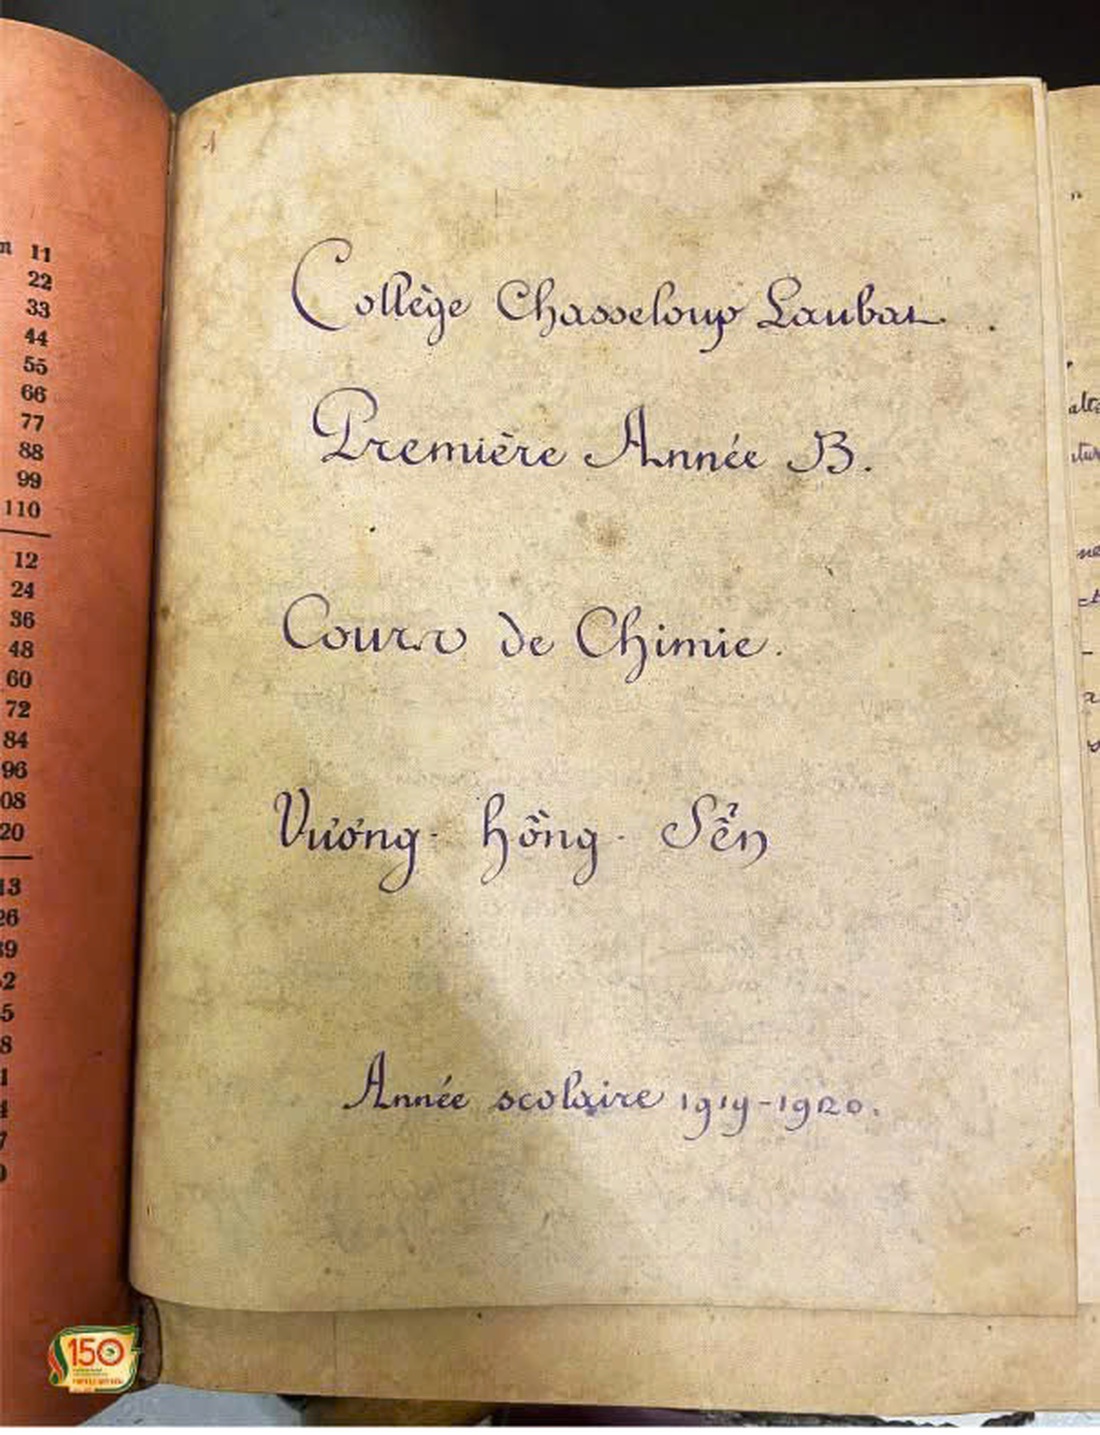 n 11
22
33
44
55
66
77
88
99
110
12
24
36
48
60
72
84
96
08
20
13
26
39
1
Collège Chasseloup Laubat.
Première Année B.
Cours de Chimie.
Vương - Hồng - Sển
Année scolaire 1919-1920.
150